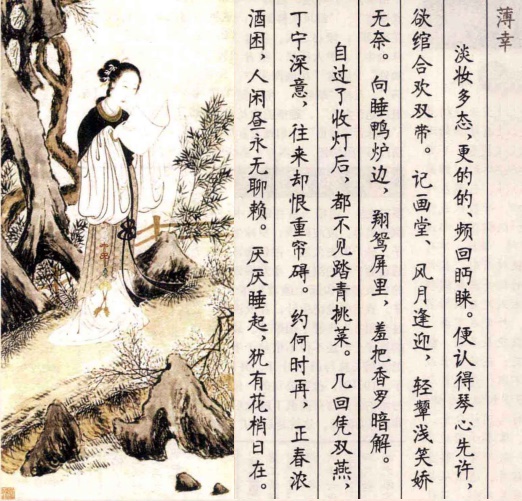 薄幸
淡妆多态，更的的、频回眄睐。便认得琴心先许，
欲绾合欢双带。记画堂、风月逢迎，轻颦浅笑娇
无奈。向睡鸭炉边，翔鸳屏里，羞把香罗暗解。
自过了收灯后，都不见踏青挑菜。几回凭双燕，
丁宁深意，往来却恨重帘碍。约何时再，正春浓
酒困，人闲昼永无聊赖。厌厌睡起，犹有花梢日在。